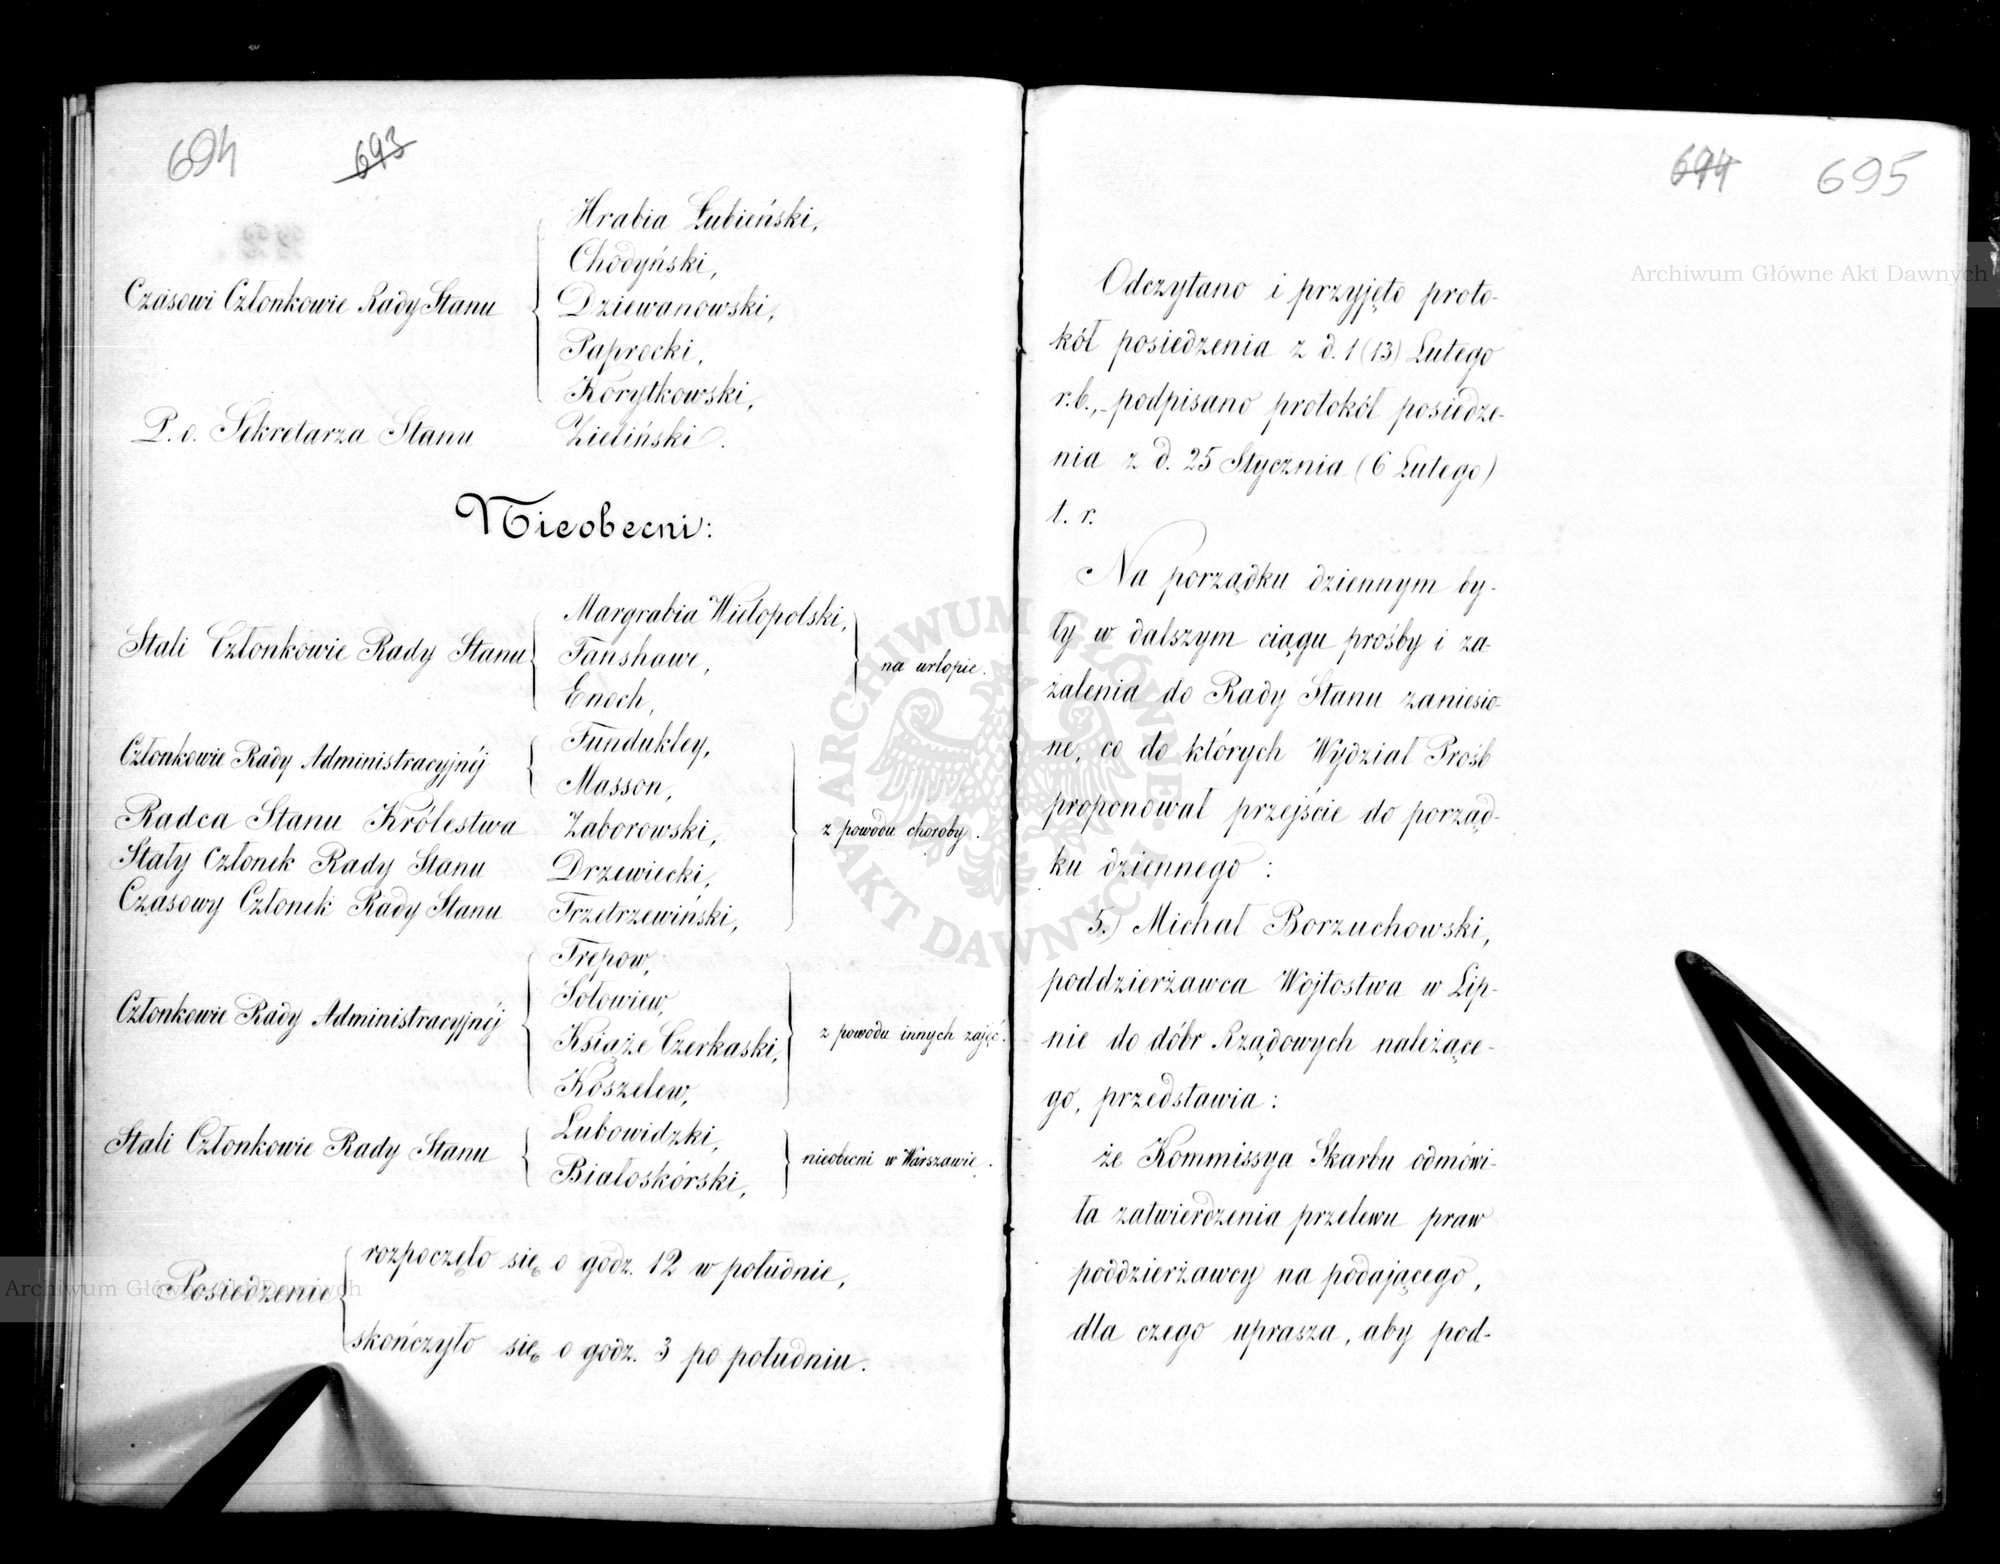 694 693
Hrabia Łubieński,
Chodyński,
Czasowi Członkowie Rady Stanu Dziewanowski,
Paprocki,
Korytkowski,
P. o. Sekretarza Stanu Zieliński.
Nieobecni:
Margrabia Wielopolski,
Stali Członkowie Rady Stanu Fanshawe, na urlopie.
Enoch,
Fundukley,
Członkowie Rady Administracyjnéj
Masson,
Radca Stanu Królestwa Zaborowski, z powodu choroby.
Stały Członek Rady Stanu Drzewiecki,
Czasowy Członek Rady Stanu Trzetrzewiński,
Trepow,
Sołowiew,
Członkowie Rady Administracyjnéj Książe Czerkaski, z powodu innych zajęć.
Koszelew,
Stali Członkowie Rady Stanu Lubowidzki, nieobecni w Warszawie.
Białoskórski,
Posiedzenie rozpoczęło się o godz. 12 w południe,
skończyło się o godz. 3 po południu.
694 695
Odczytano i przyjęto proto-
kół posiedzenia z d. 1 (13) Lutego
r.b., podpisano protokół posiedze-
nia z d. 25 Stycznia (6 Lutego)
t. r.
Na porządku dziennym by-
ły w dalszym ciągu prośby i za-
żalenia do Rady Stanu zaniesio-
ne, co do których Wydział Próśb
proponował przejście do porząd-
ku dziennego:
5.) Michał Borzuchowski,
poddzierżawca Wójtostwa w Lip-
nie do dóbr Rządowych należące-
go, przedstawia:
że Kommissya Skarbu odmówi-
ła zatwierdzenia przelewu praw
poddzierżawcy na podającego,
dla czego uprasza, aby pod-
Archiwum Główne Akt Dawnych
Archiwum Główne Akt Dawnych
ARCHIWUM GŁÓWNE AKT DAWNYCH